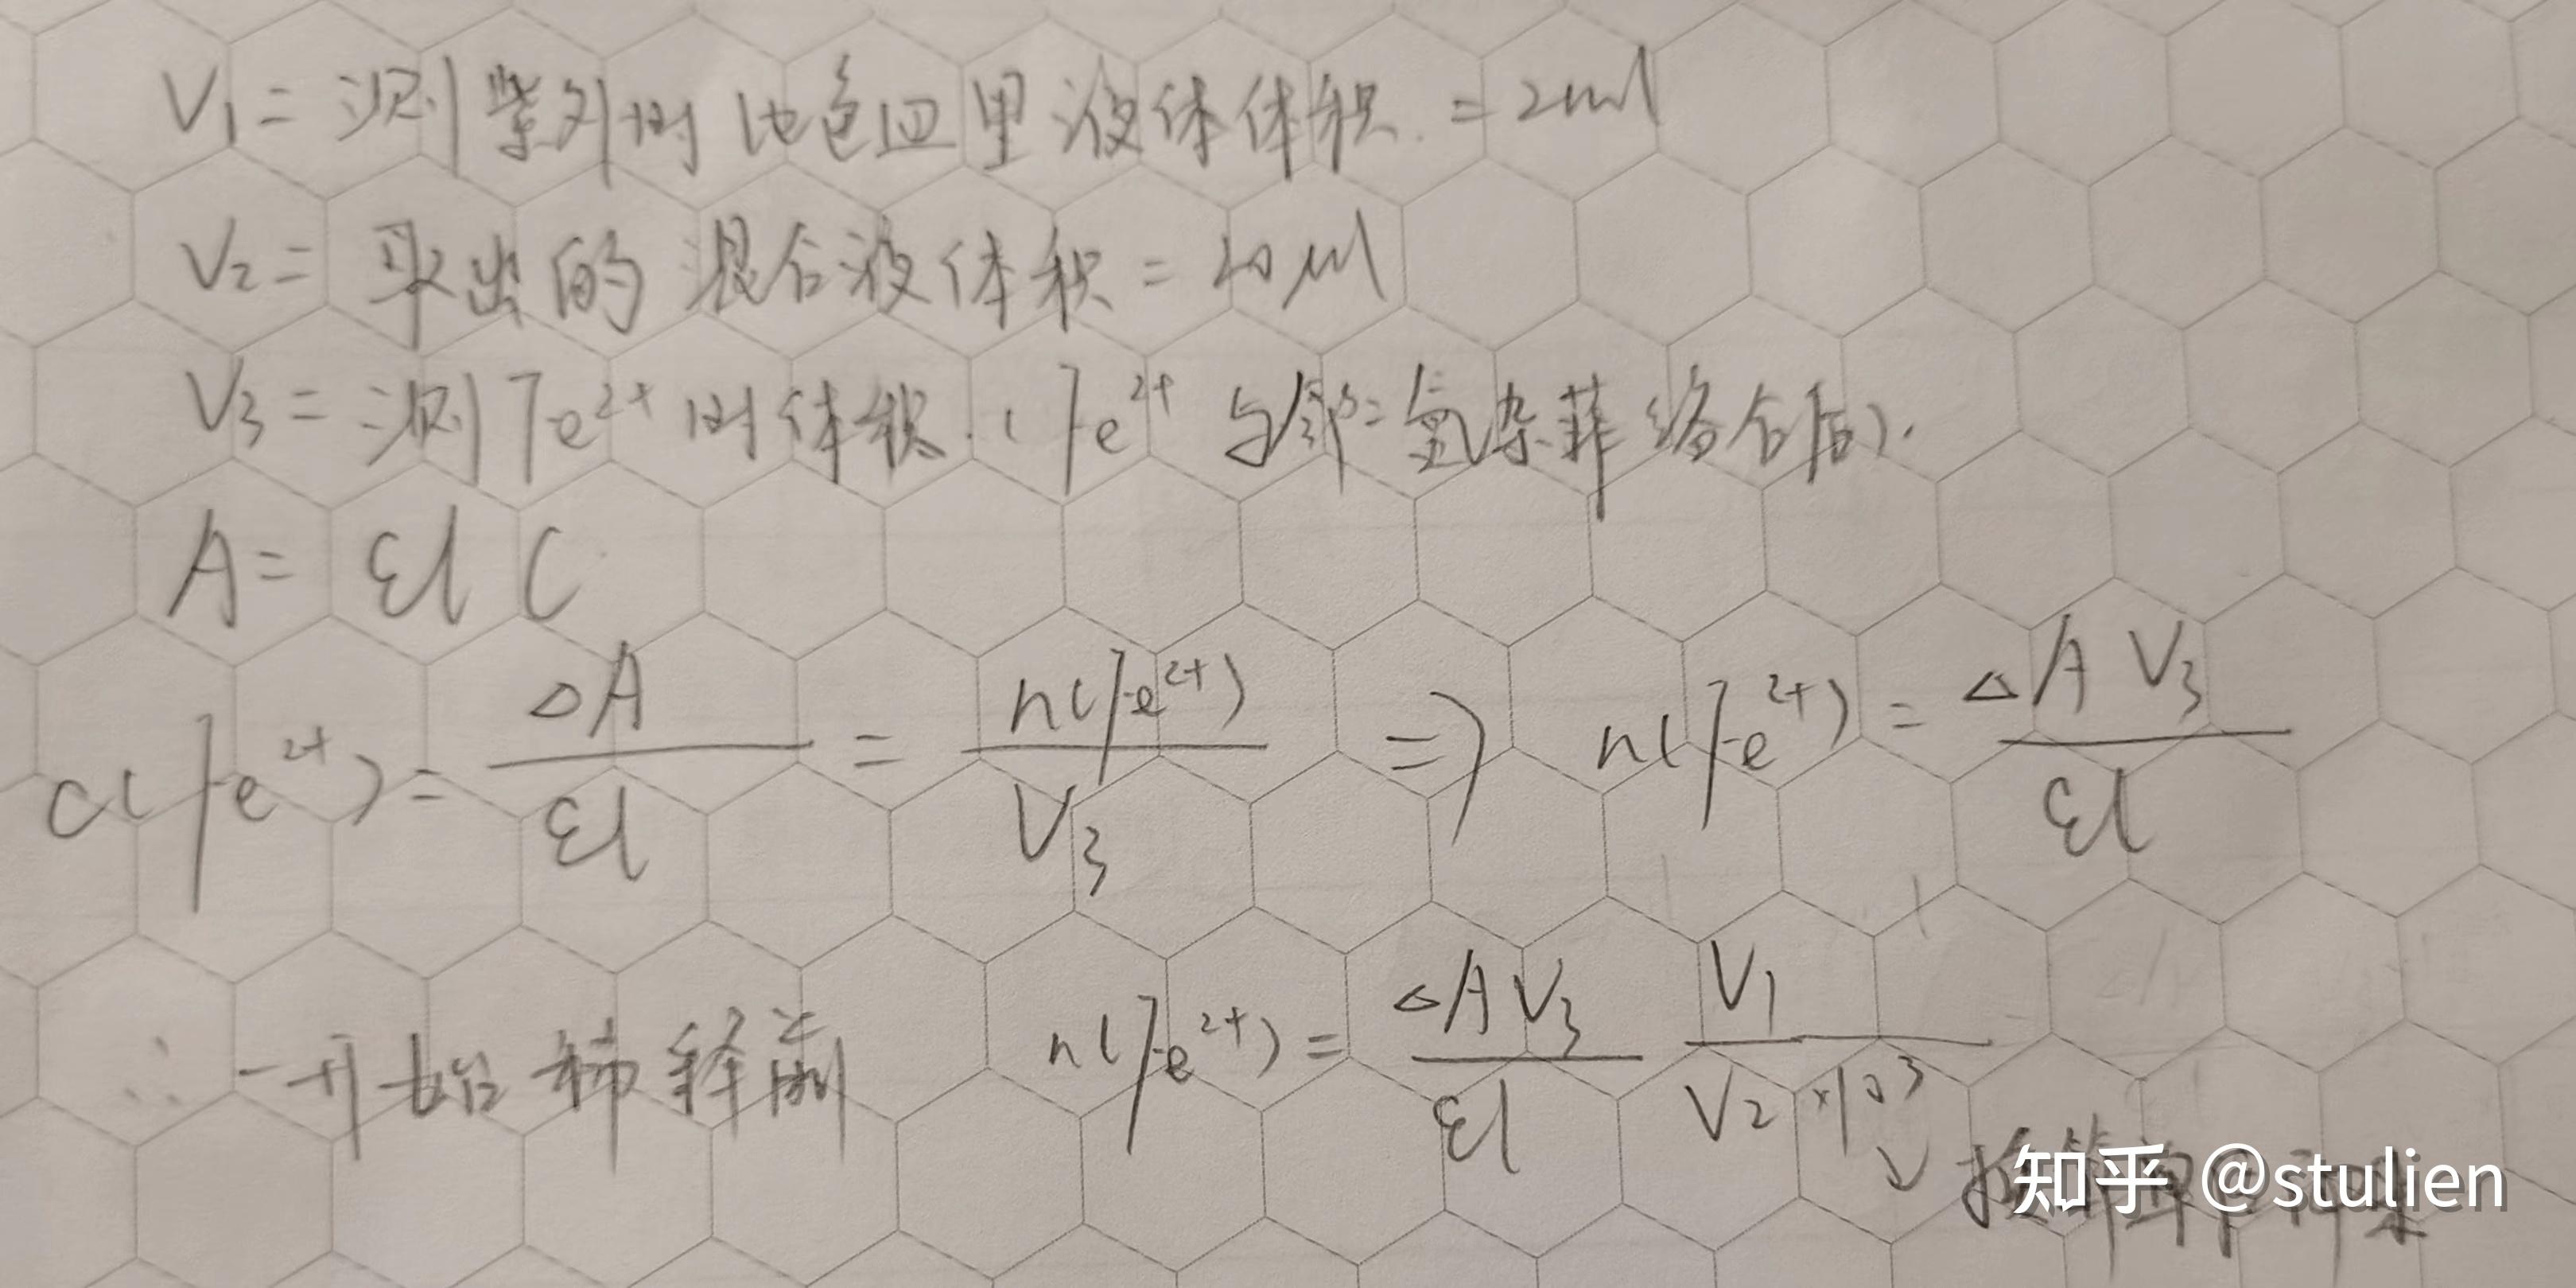 V₁ = 测紫外时比色皿里液体体积. = 2ml
V₂ = 取出的混合液体积 = 20 μl
V₃ = 测Fe²⁺时体积. (Fe²⁺ 与邻二氮杂菲络合后).
A = εl C
c(Fe²⁺) = ΔA / εl = n(Fe²⁺) / V₃ => n(Fe²⁺) = ΔA V₃ / εl
∴ 一开始稀释前 n(Fe²⁺) = ΔA V₃ / εl V₁ / V₂×10³
↓ 换算单位
知乎 @stulien